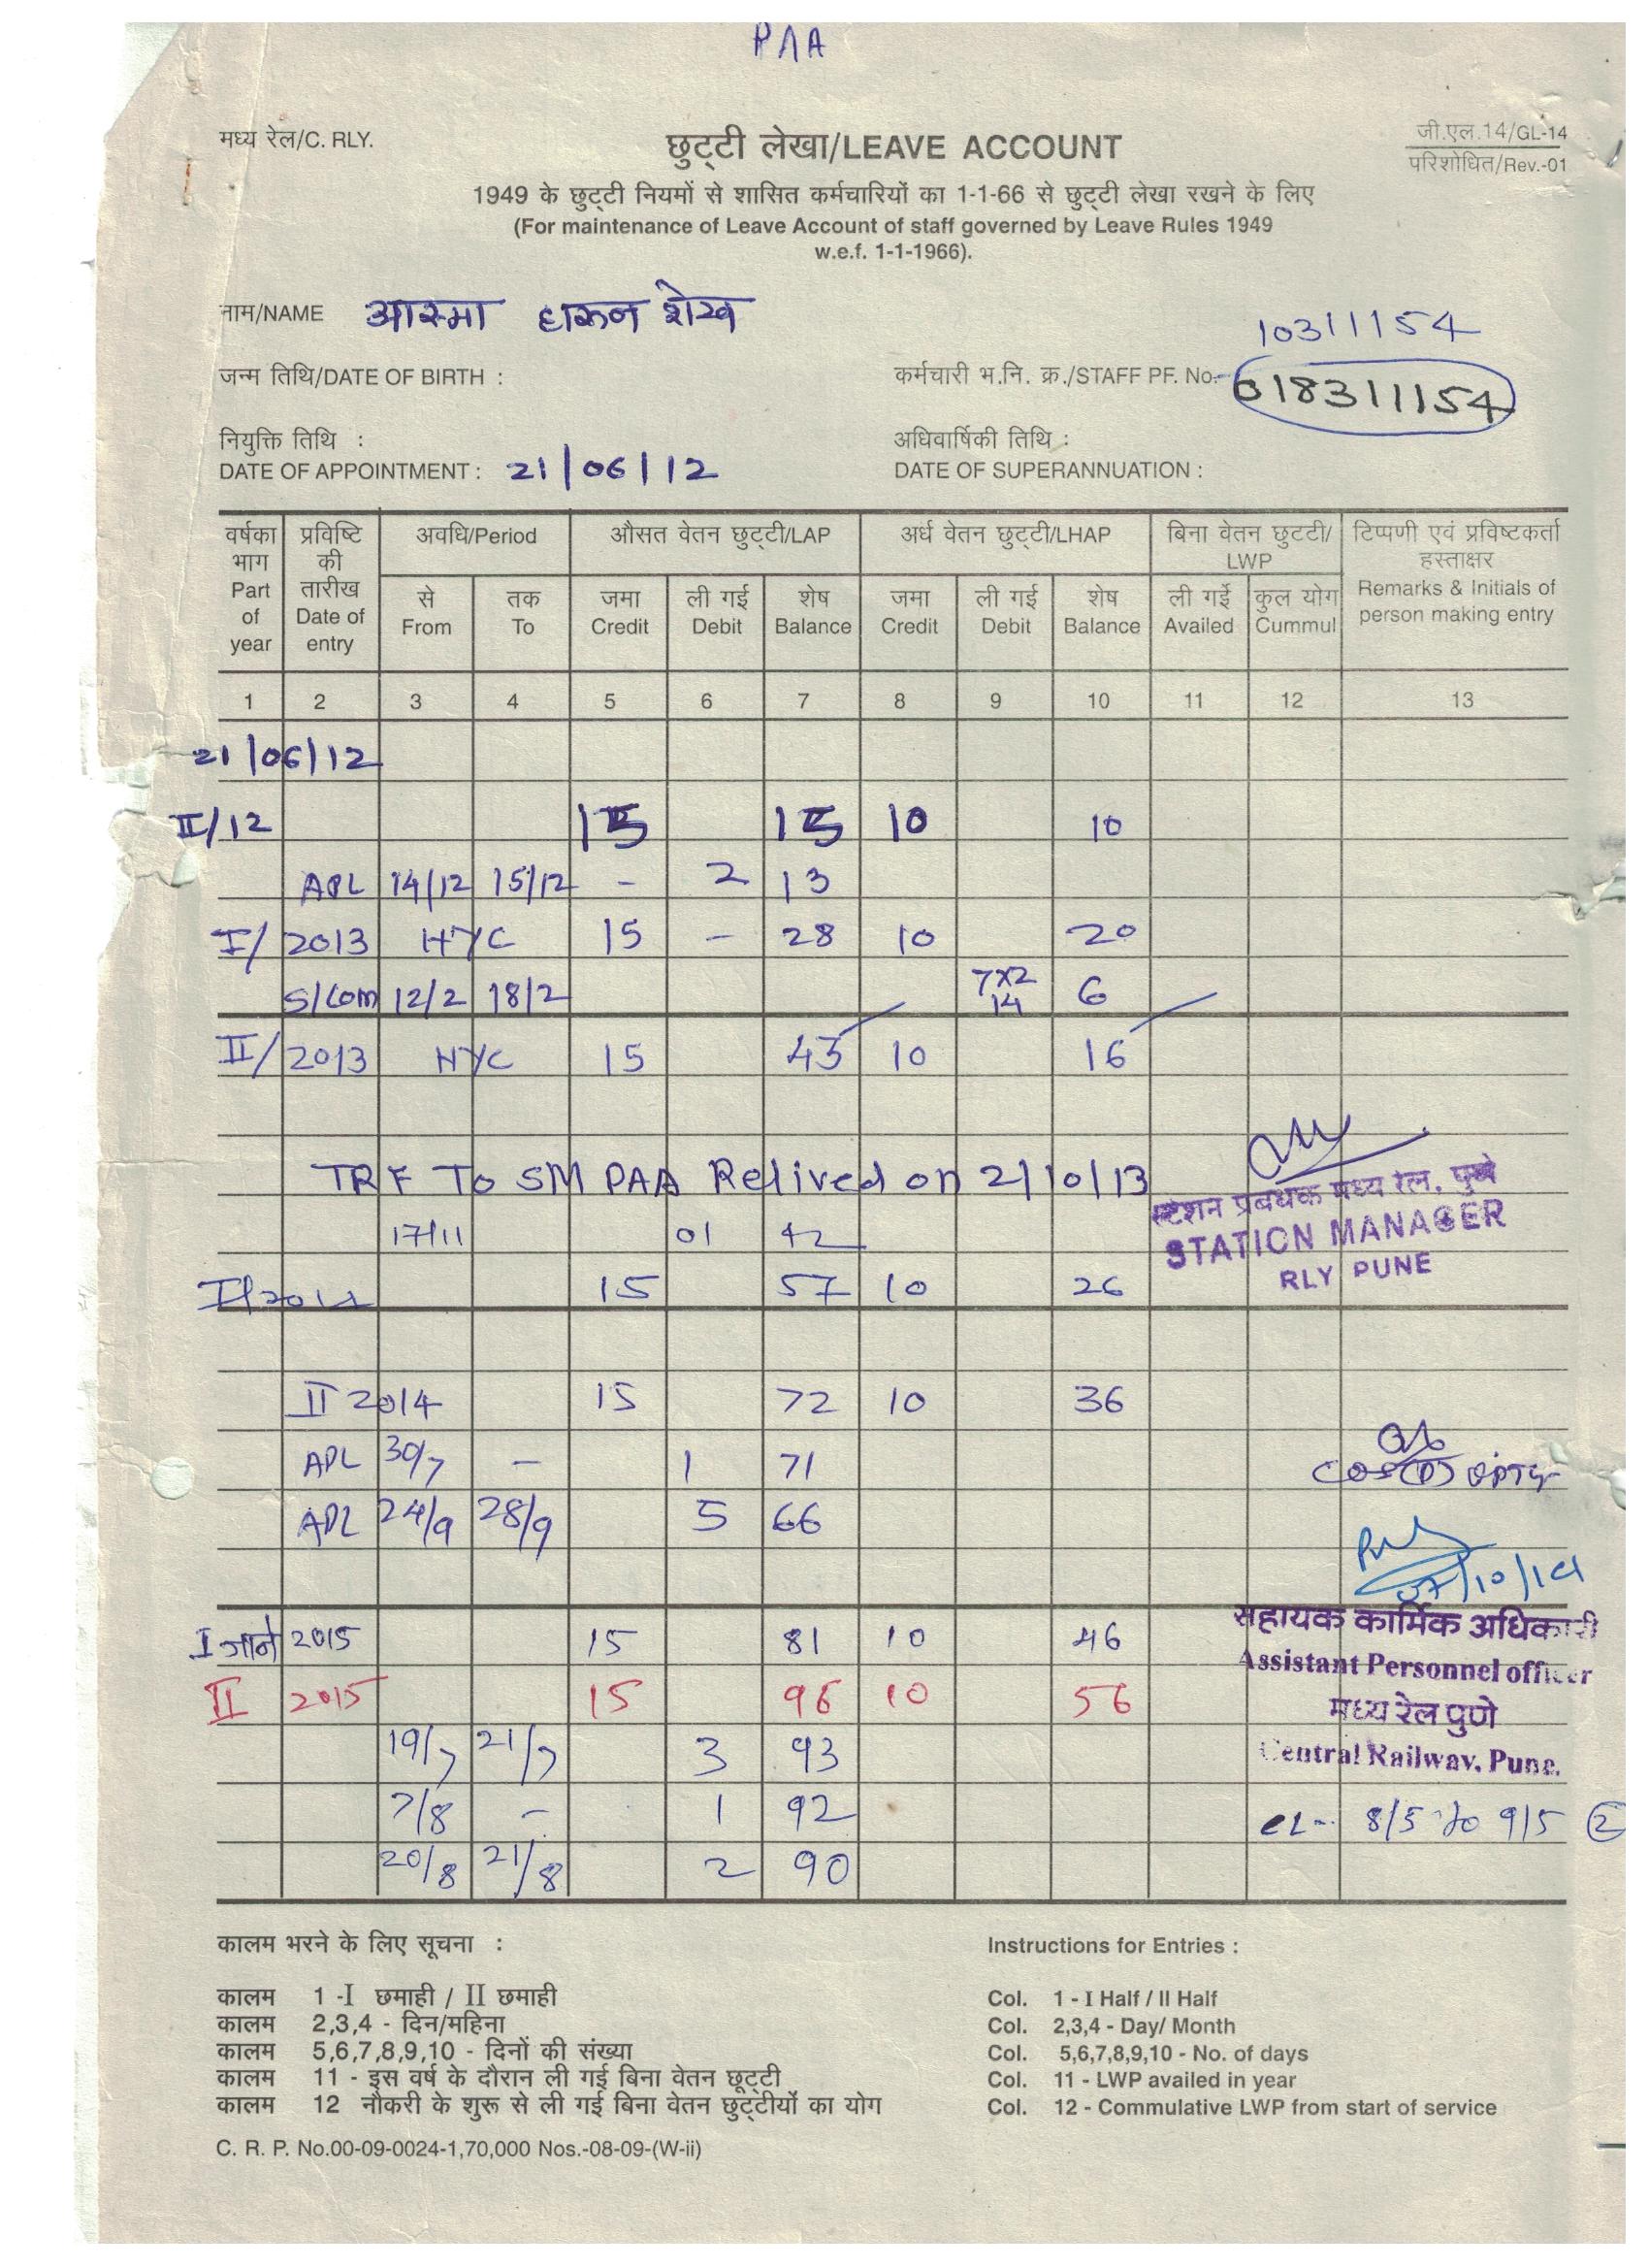 PAA
मध्य रेल/C. RLY.
छुट्टी लेखा/LEAVE ACCOUNT
जी.एल.14/GL-14
परिशोधित/Rev.-01
1949 के छुट्टी नियमों से शासित कर्मचारियों का 1-1-66 से छुट्टी लेखा रखने के लिए
(For maintenance of Leave Account of staff governed by Leave Rules 1949
w.e.f. 1-1-1966).
नाम/NAME आस्मा हारून शेख
10311154
जन्म तिथि/DATE OF BIRTH :
कर्मचारी भ.नि. क्र./STAFF PF. No. 018311154
नियुक्ति तिथि :
DATE OF APPOINTMENT : 21/06/12
अधिवार्षिकी तिथि :
DATE OF SUPERANNUATION :
वर्षका भाग Part of year
प्रविष्टि की तारीख Date of entry
अवधि/Period
औसत वेतन छुट्टी/LAP
अर्ध वेतन छुट्टी/LHAP
बिना वेतन छुटटी/ LWP
टिप्पणी एवं प्रविष्टकर्ता हस्ताक्षर Remarks & Initials of person making entry
से From
तक To
जमा Credit
ली गई Debit
शेष Balance
जमा Credit
ली गई Debit
शेष Balance
ली गई Availed
कुल योग Cummul
1 2 3 4 5 6 7 8 9 10 11 12 13
21/06/12
II/12 15 15 10 10
APL 14/12 15/12 - 2 13
I/ 2013 HYC 15 - 28 10 20
S/Com 12/2 18/2 7x2 14 6
II/ 2013 HYC 15 43 10 16
TRF TO SM PAA Relived on 2/10/13
स्टेशन प्रबंधक मध्य रेल, पुणे
STATION MANAGER
RLY PUNE
17/11 01 42
I/2014 15 57 10 26
II 2014 15 72 10 36
APL 30/7 - 1 71
APL 24/9 28/9 5 66
07/10/14
सहायक कार्मिक अधिकारी
Assistant Personnel officer
मध्य रेल पुणे
Central Railway, Pune.
I जाने 2015 15 81 10 46
II 2015 15 96 10 56
19/7 21/7 3 93
7/8 - 1 92
CL- 8/5 to 9/5 2
20/8 21/8 2 90
कालम भरने के लिए सूचना :
कालम 1 -I छमाही / II छमाही
कालम 2,3,4 - दिन/महिना
कालम 5,6,7,8,9,10 - दिनों की संख्या
कालम 11 - इस वर्ष के दौरान ली गई बिना वेतन छूट्टी
कालम 12 नौकरी के शुरू से ली गई बिना वेतन छुट्टीयों का योग
Instructions for Entries :
Col. 1 - I Half / II Half
Col. 2,3,4 - Day/ Month
Col. 5,6,7,8,9,10 - No. of days
Col. 11 - LWP availed in year
Col. 12 - Commulative LWP from start of service
C. R. P. No.00-09-0024-1,70,000 Nos.-08-09-(W-ii)